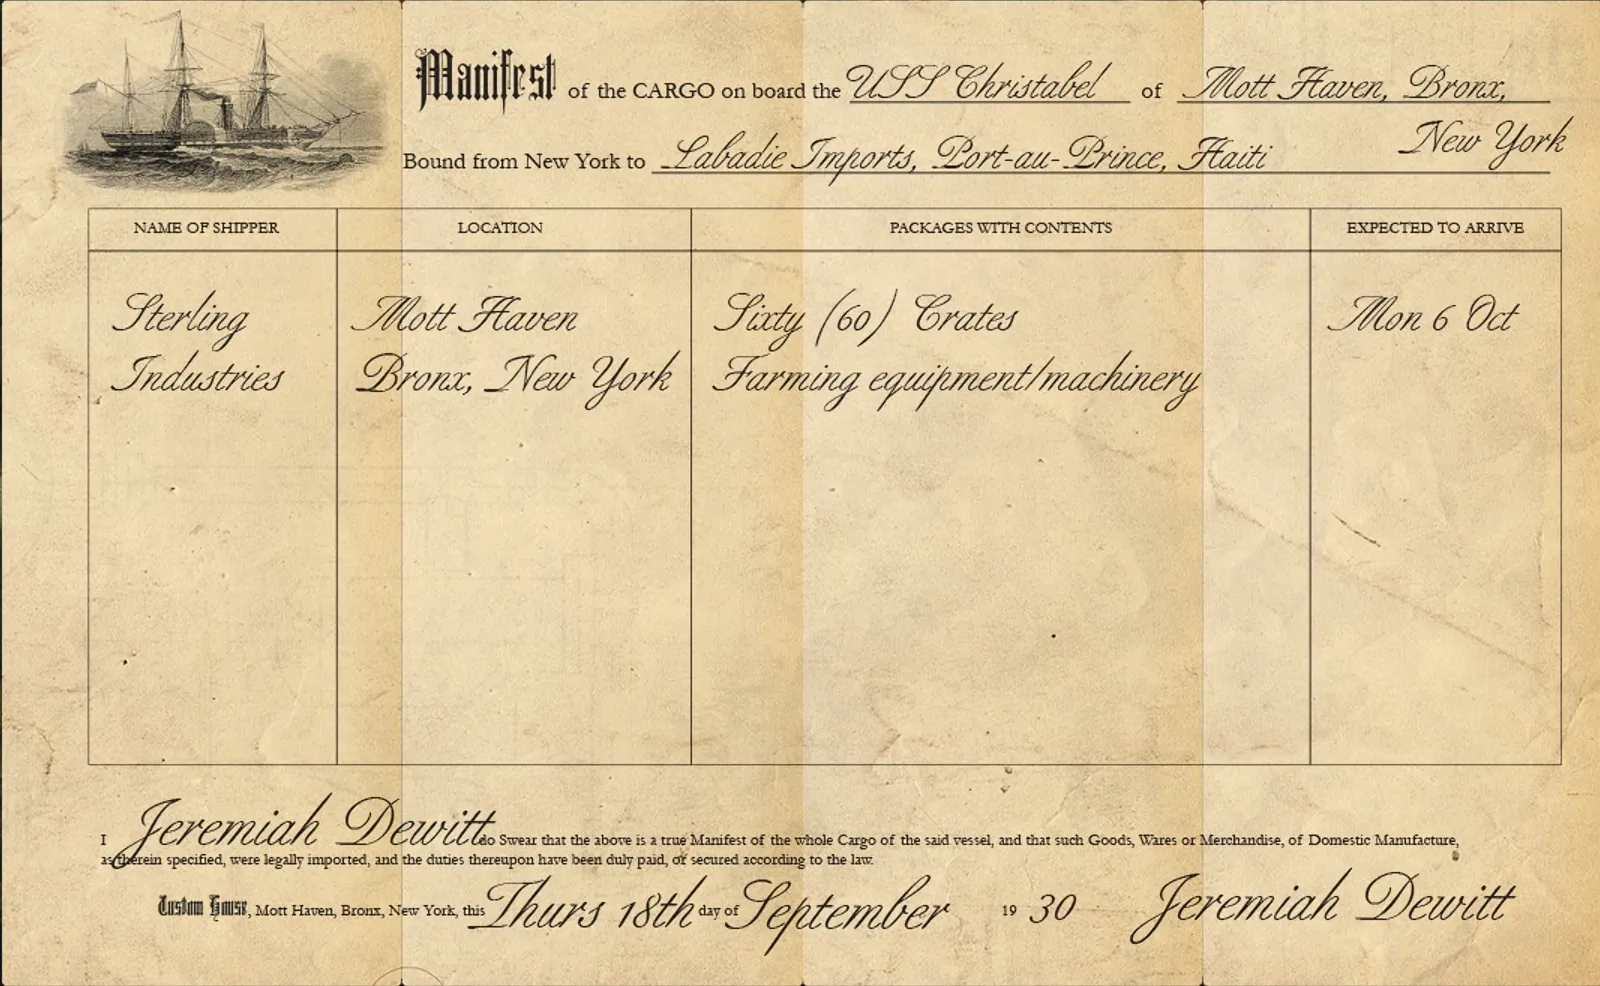 Manifest of the CARGO on board the USS Christabel of Mott Haven, Bronx,
New York
Bound from New York to Labadie Imports, Port-au-Prince, Haiti
NAME OF SHIPPER LOCATION PACKAGES WITH CONTENTS EXPECTED TO ARRIVE
Sterling Mott Haven Sixty (60) Crates Mon 6 Oct
Industries Bronx, New York Farming equipment/machinery
I Jeremiah Dewitt do Swear that the above is a true Manifest of the whole Cargo of the said vessel, and that such Goods, Wares or Merchandise, of Domestic Manufacture,
as therein specified, were legally imported, and the duties thereupon have been duly paid, or secured according to the law.
Custom House, Mott Haven, Bronx, New York, this Thurs 18th day of September 19 30 Jeremiah Dewitt